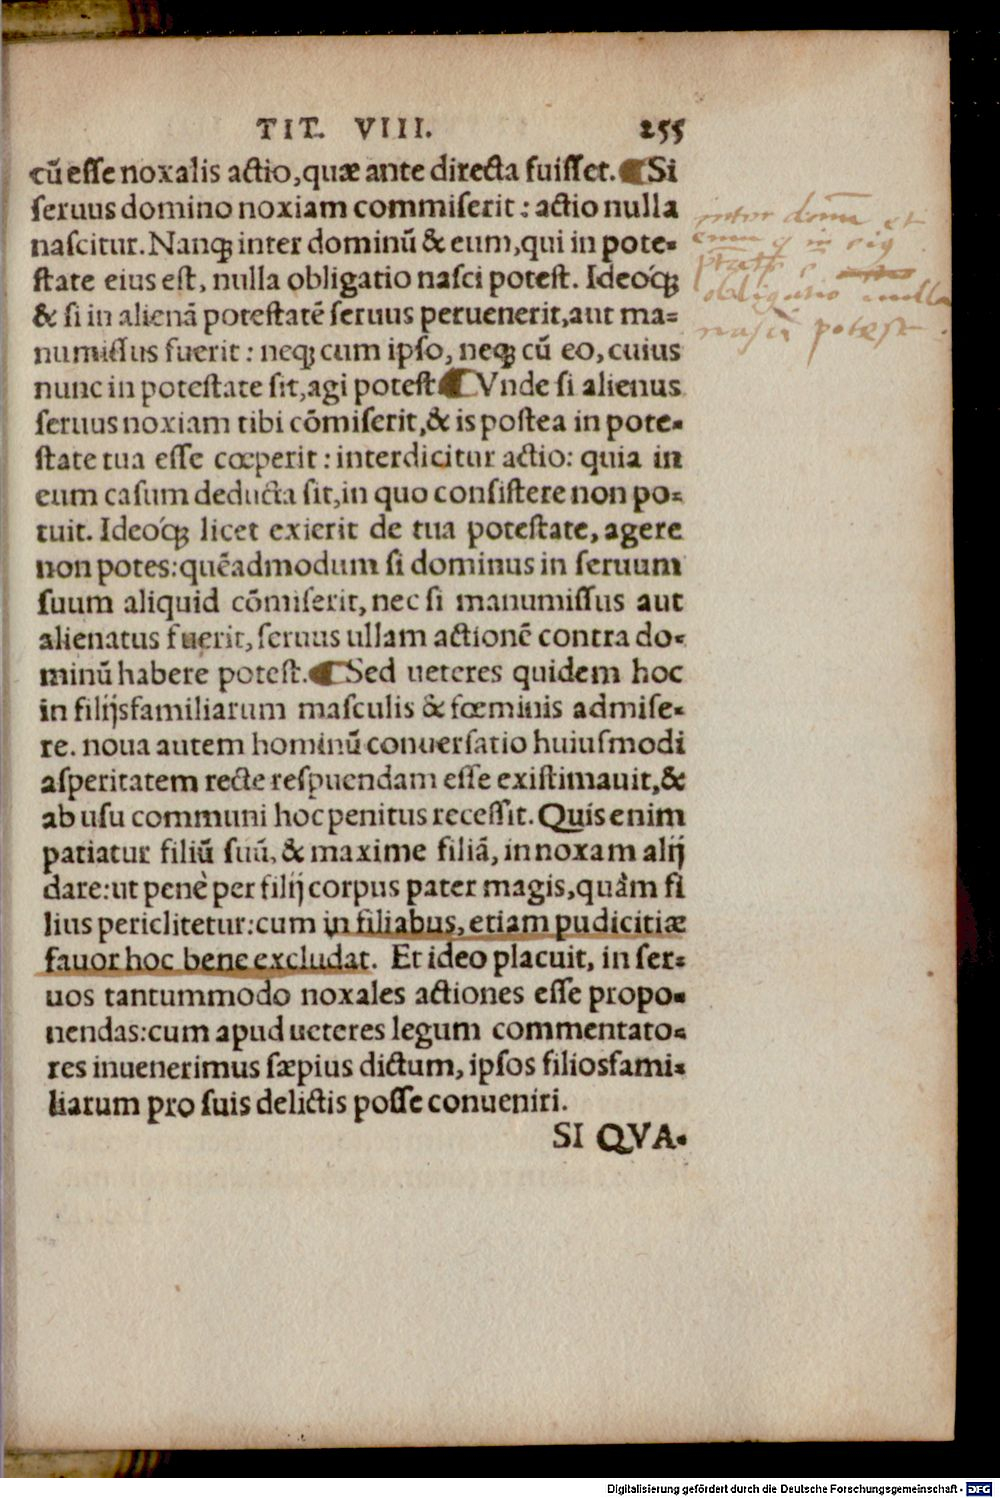 TIT. VIII. 255
cū esse noxalis actio, quæ ante directa fuisset. ¶ Si
seruus domino noxiam commiserit: actio nulla
nascitur. Nanq; inter dominū & eum, qui in pote-
state eius est, nulla obligatio nasci potest. Ideoq́;
& si in alienā potestatē seruus peruenerit, aut ma-
numissus fuerit: neq; cum ipso, neq; cū eo, cuius
nunc in potestate sit, agi potest ¶ Vnde si alienus
seruus noxiam tibi cōmiserit, & is postea in pote-
state tua esse cœperit: interdicitur actio: quia in
eum casum deducta sit, in quo consistere non po-
tuit. Ideoq́; licet exierit de tua potestate, agere
non potes: quēadmodum si dominus in seruum
suum aliquid cōmiserit, nec si manumissus aut
alienatus fuerit, seruus ullam actionē contra do-
minū habere potest. ¶ Sed ueteres quidem hoc
in filijsfamiliarum masculis & fœminis admise-
re. noua autem hominū conuersatio huiusmodi
asperitatem recte respuendam esse existimauit, &
ab usu communi hoc penitus recessit. Quis enim
patiatur filiū suū, & maxime filiā, in noxam alij
dare: ut penè per filij corpus pater magis, quàm fi
lius periclitetur: cum in filiabus, etiam pudicitiæ
fauor hoc bene excludat. Et ideo placuit, in ser-
uos tantummodo noxales actiones esse propo-
nendas: cum apud ueteres legum commentato-
res inuenerimus sæpius dictum, ipsos filiosfami-
liarum pro suis delictis posse conueniri.
SI QVA-
inter dom̄ et
eum q in eiq
ptāte ē
obligatio nulla
nasci potest.
Digitalisierung gefördert durch die Deutsche Forschungsgemeinschaft - DFG